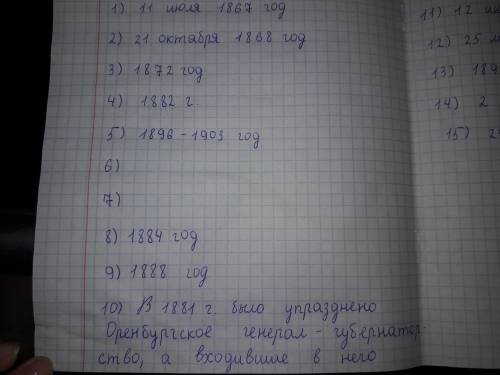 1) 11 июля 1867 год
2) 21 октября 1868 год
3) 1872 год
4) 1882 г.
5) 1896 - 1903 год
6)
7)
8) 1884 год
9) 1888 год
10) В 1881 г. было упразднено
Оренбургское генерал - губернатор-
ство, а входившие в него
11) 12 ию
12) 25 м
13) 189
14) 2
15) 2